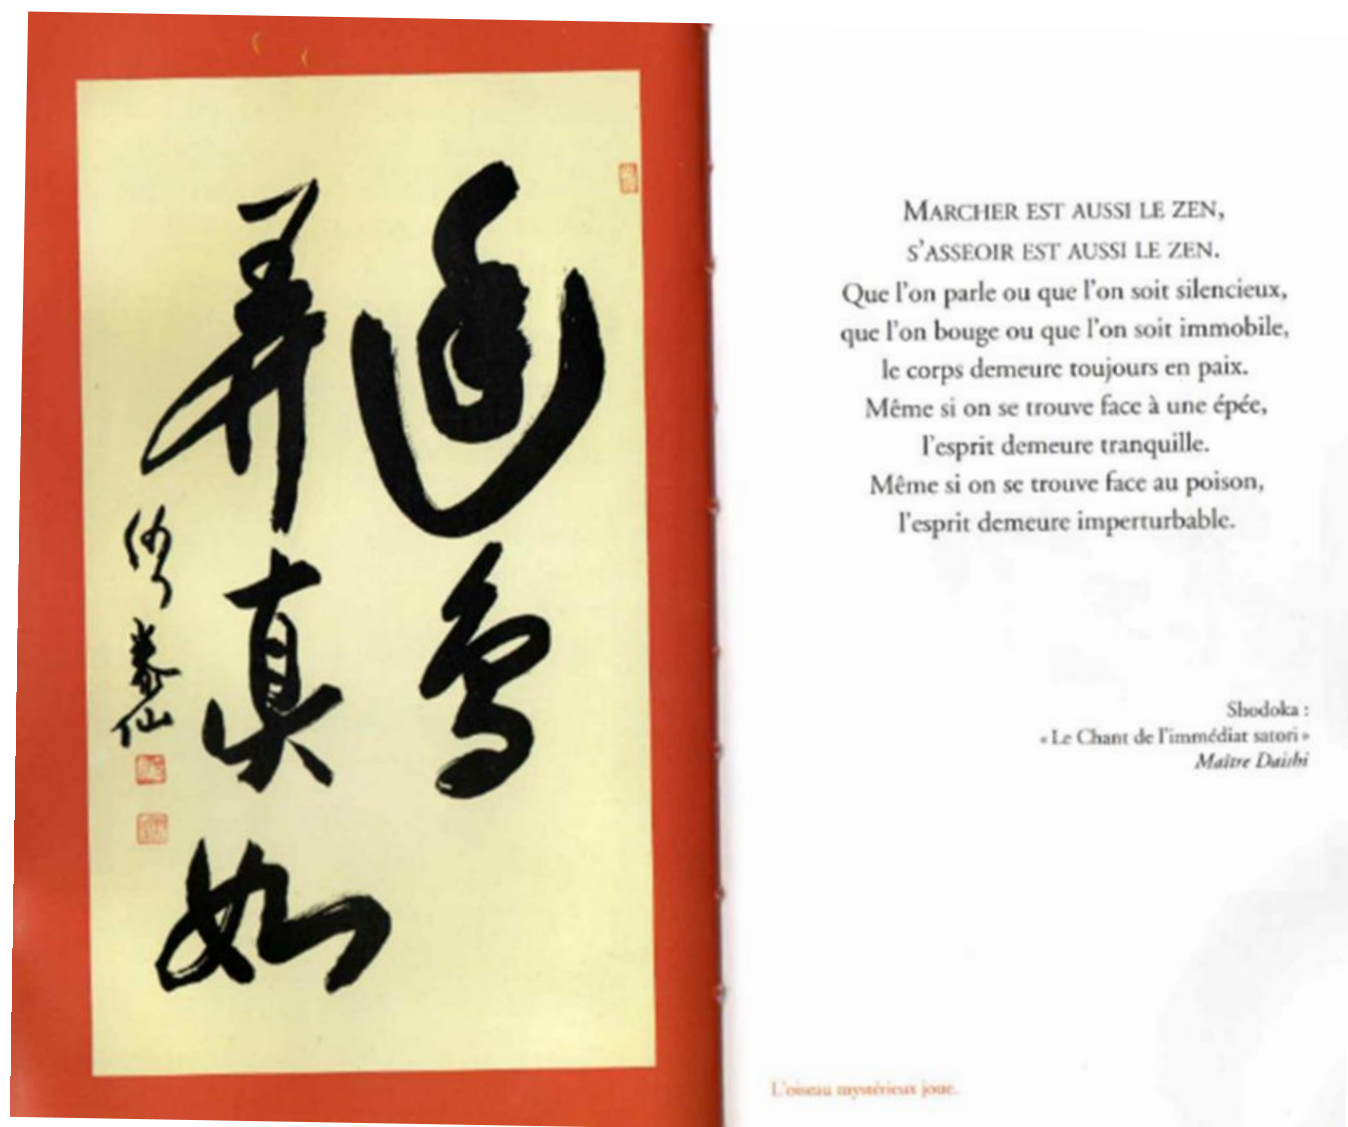 幽鳥
弄真如
佛 泰仙
MARCHER EST AUSSI LE ZEN,
S'ASSEOIR EST AUSSI LE ZEN.
Que l'on parle ou que l'on soit silencieux,
que l'on bouge ou que l'on soit immobile,
le corps demeure toujours en paix.
Même si on se trouve face à une épée,
l'esprit demeure tranquille.
Même si on se trouve face au poison,
l'esprit demeure imperturbable.
Shodoka :
« Le Chant de l'immédiat satori »
Maître Daishi
L'oiseau mystérieux joue.